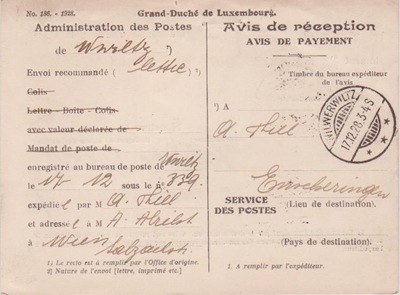 No. 186. - 1928.
Grand-Duché de Luxembourg.
Administration des Postes
de Wiltz 1)
Envoi recommandé ( lettre ).
Colis
Lettre - Boîte - Colis
avec valeur déclarée de
Mandat de poste de
enregistré au bureau de poste de Wiltz
le 17 12 sous le no 339.
expédié ( par M A. Thill
et adressé ( à M A.
à Wien
1) Le recto est à remplir par l'Office d'origine.
2) Nature de l'envoi [lettre, imprimé etc.]
Avis de réception
AVIS DE PAYEMENT
Timbre du bureau expéditeur
de l'avis
WILWERWILTZ
17.12.28.3-4S
1) A
A. Thill
SERVICE
DES POSTES
(Lieu de destination).
(Pays de destination).
1. A remplir par l'expéditeur.